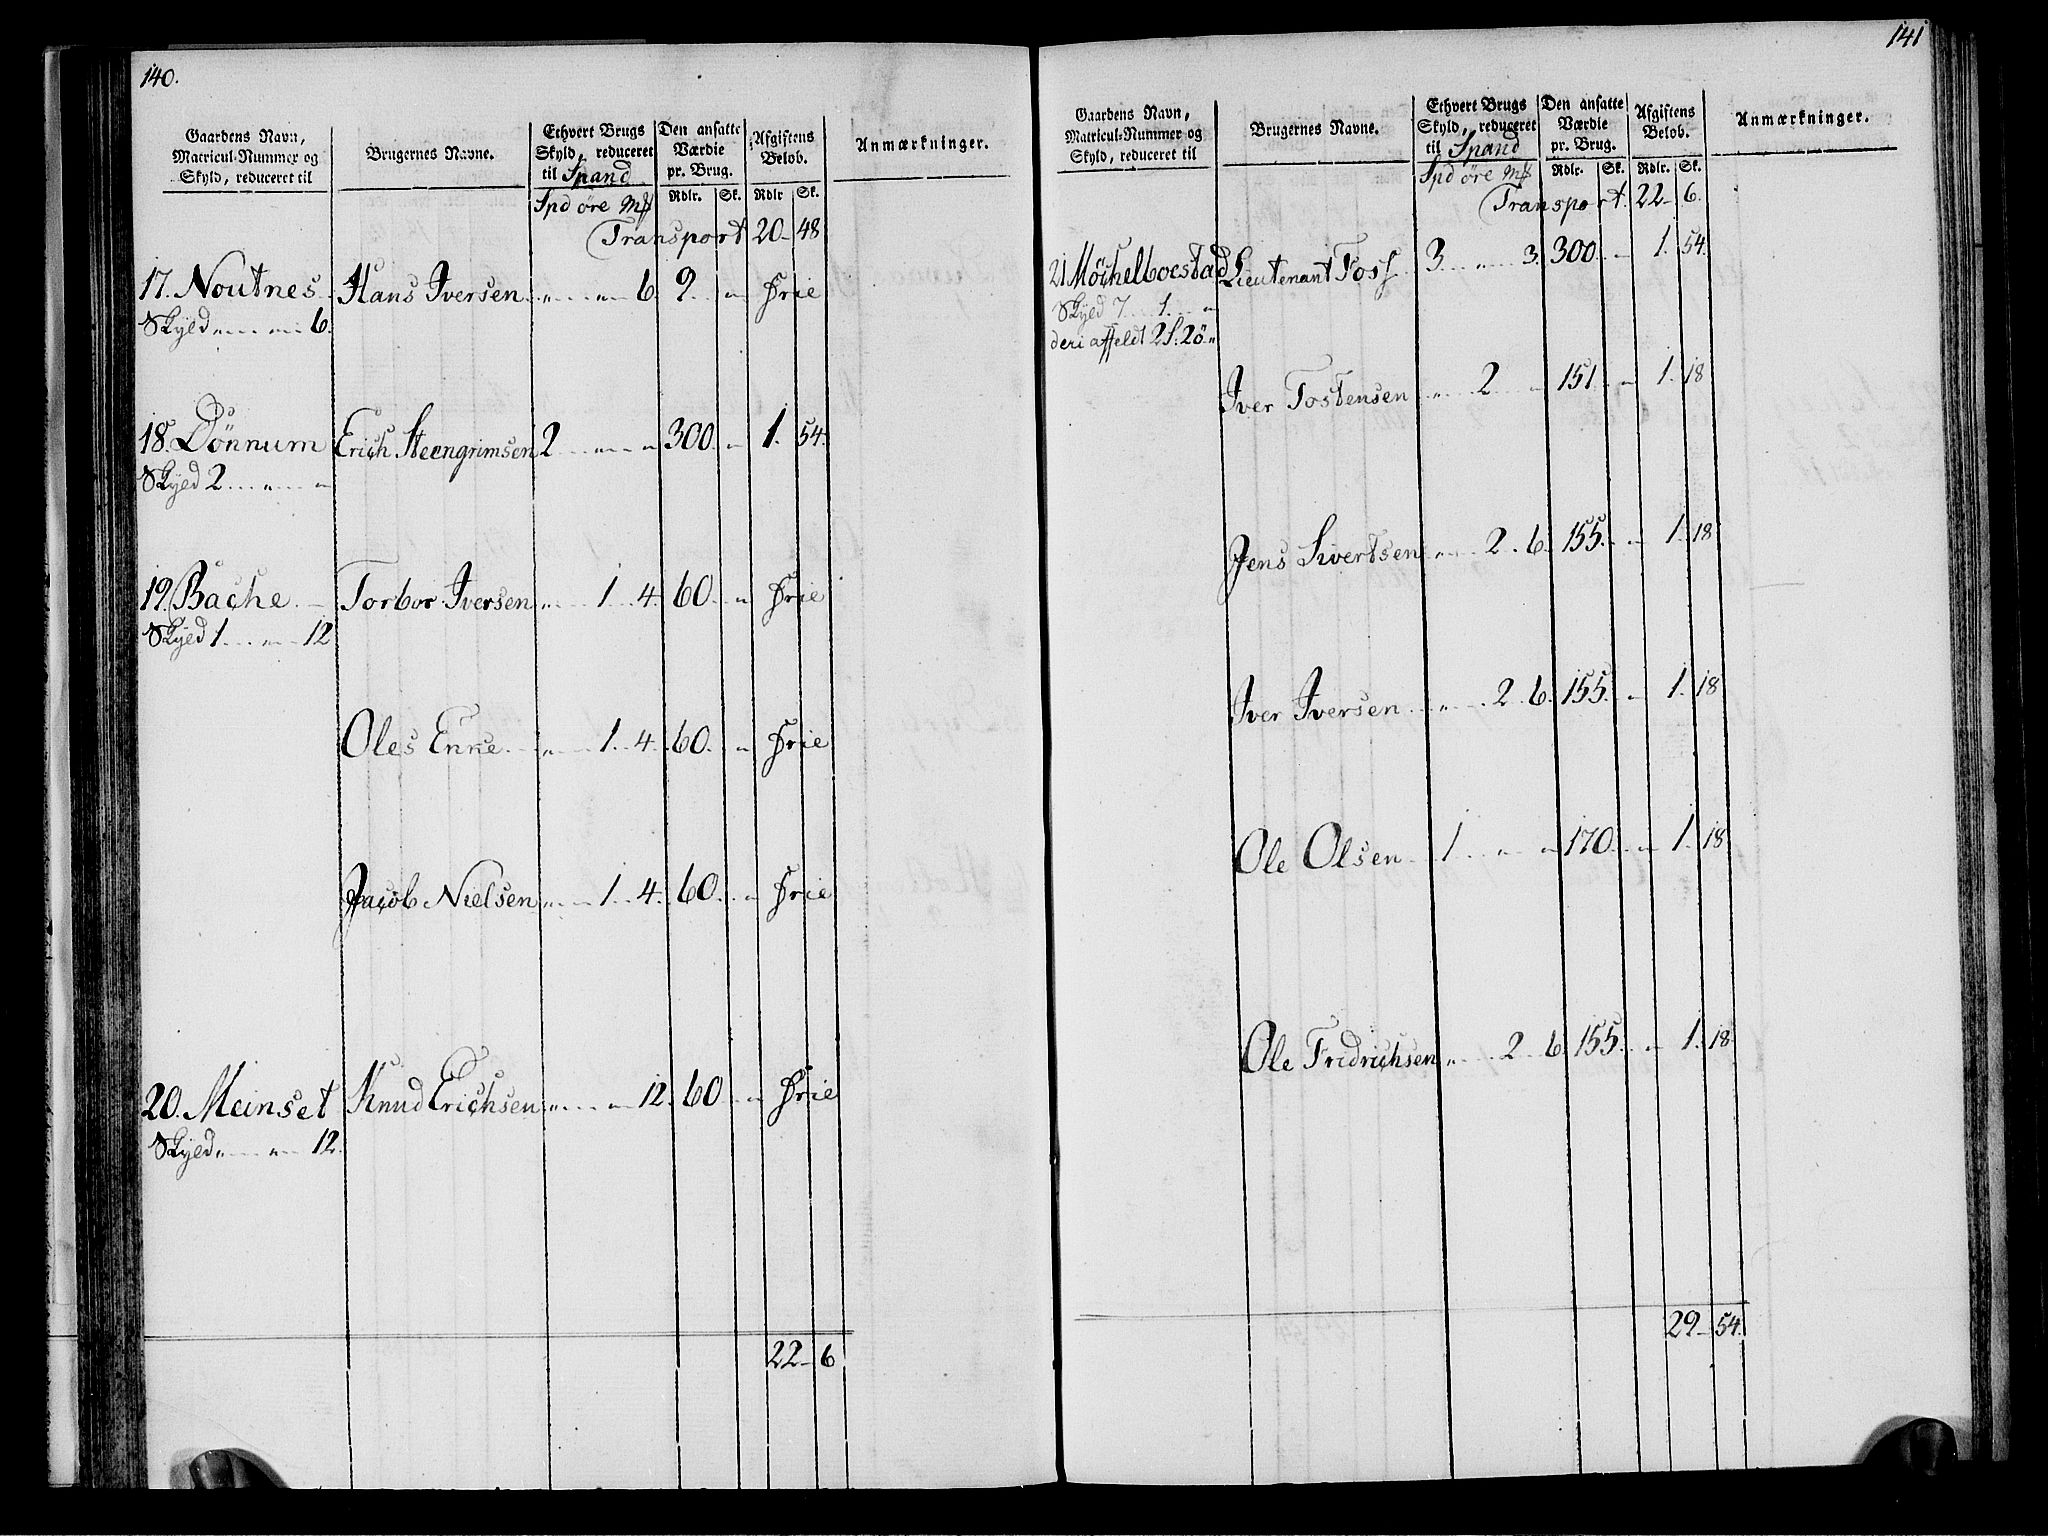 140.
Gaardens Navn, Matricul-Nummer og Skyld, reduceret til
Brugernes Navne.
Ethvert Brugs Skyld, reduceret til Spand
Den ansatte Værdie pr. Brug.
Afgiftens Belob.
Anmærkninger.
Spd öre Mſ Rdlr. Sk. Rdlr Sk.
Transport 20 - 48
17. Noutnes Hans Iversen „ „ 6. 9. „ Frie
Skyld „ „ 6.
18. Dönnum Erich Steengrimsen 2 „ „ 300. „ 1. 54.
Skyld 2 „ „
19. Bache Torbor Iversen „ 1. 4. 60. „ Frie
Skyld 1. „ 12
Oles Enke „ 1. 4. 60. „ Frie
Jacob Nielsen „ 1. 4. 60. „ Frie
20. Meinset Knud Erichsen „ „ 12. 60 „ Frie
Skyld „ „ 12.
22 - 6
141
Gaardens Navn, Matricul-Nummer og Skyld, reduceret til
Brugernes Navne.
Ethvert Brugs Skyld, reduceret til Spand
Den ansatte Værdie pr. Brug.
Afgiftens Belob.
Anmærkninger.
Spd öre Mſ Rdlr. Sk. Rdlr. Sk.
Transport. 22 - 6.
21 Möchelboestad Lieutenant Foss 3 „ 3. 300. „ 1. 54.
Skyld 7. 1. „
deri affeldt 2 S. 2 ö „
Iver Tostensen „ 2 „ 151. „ 1. 18
Jens Sivertsen „ 2. 6. 155. „ 1. 18
Iver Iversen „ 2. 6. 155. „ 1. 18
Ole Olsen 1 „ „ 170. „ 1. 18
Ole Fridrichsen „ 2 6. 155. „ 1. 18.
29 - 54.